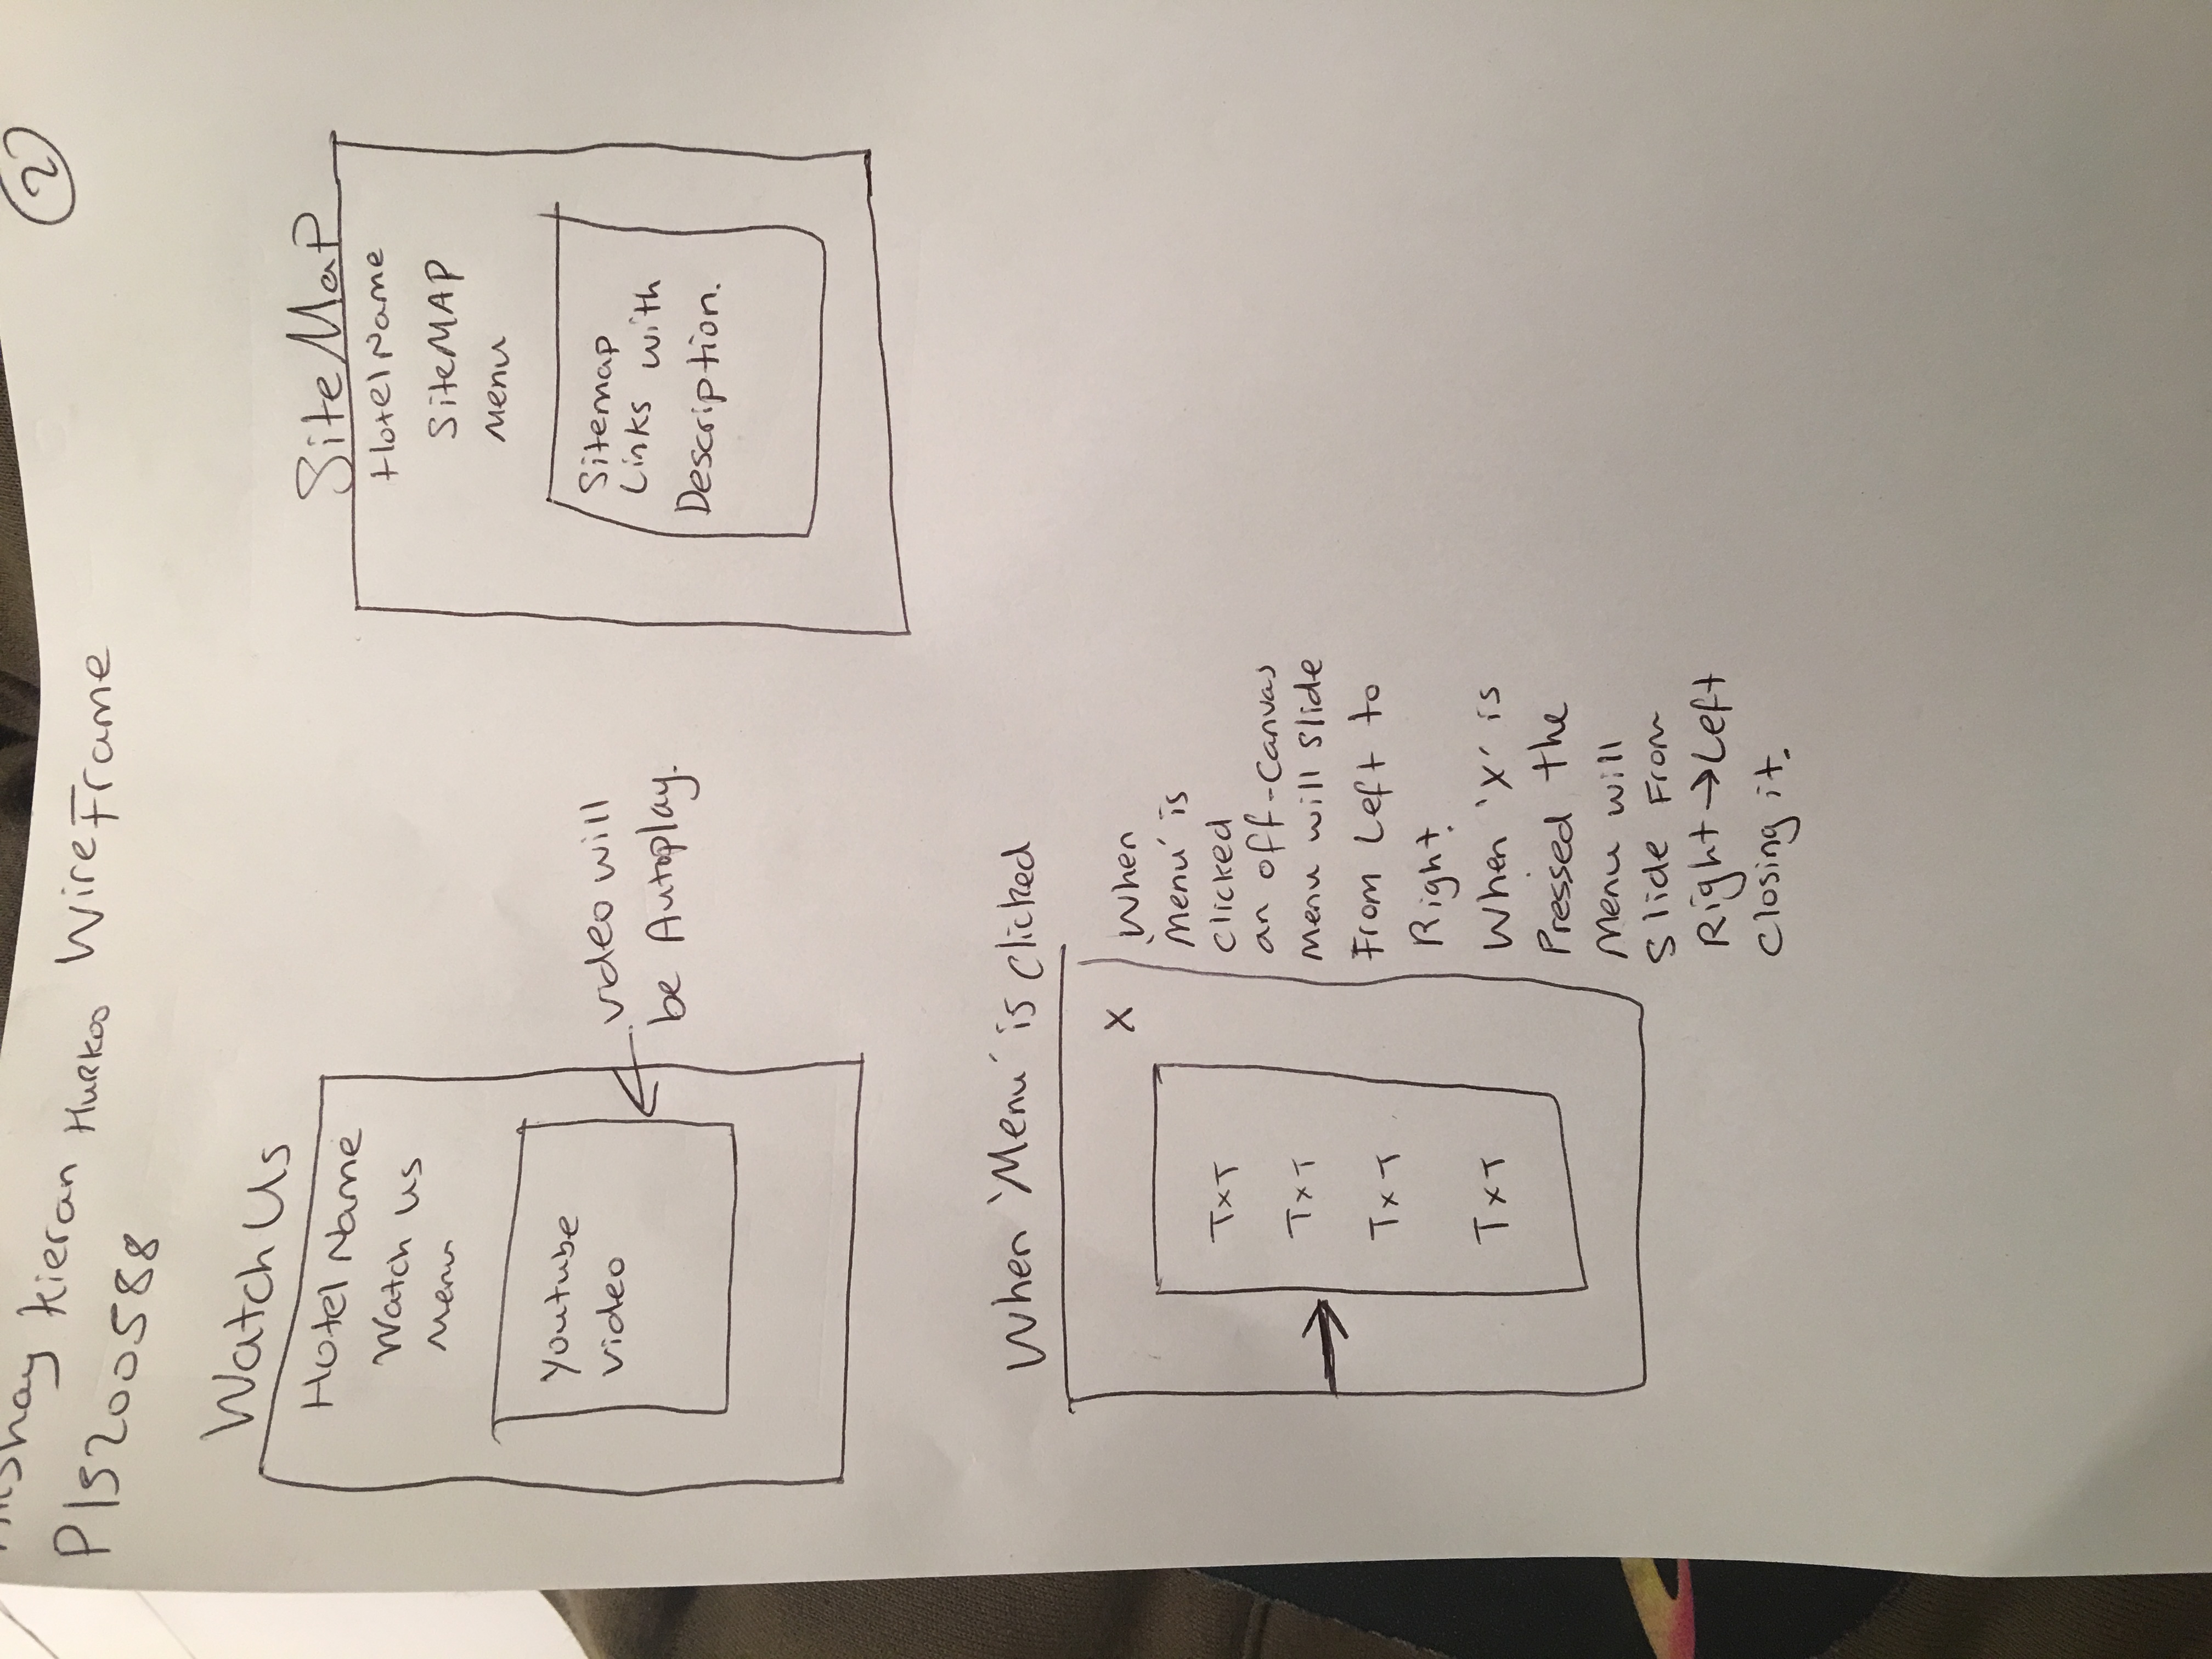 Kieran Hurkoo WireFrame
2
P15200588
Watch Us
Hotel Name
Watch us
Menu
Youtube
video
video will
be Autoplay.
SiteMaP
Hotel Name
SiteMAP
Menu
Sitemap
Links with
Description.
When 'Menu' is clicked
X
TxT
TxT
TxT
TxT
When
'Menu' is
clicked
an off-canvas
Menu will slide
From Left to
Right.
When 'X' is
Pressed the
Menu will
Slide From
Right → Left
closing it.